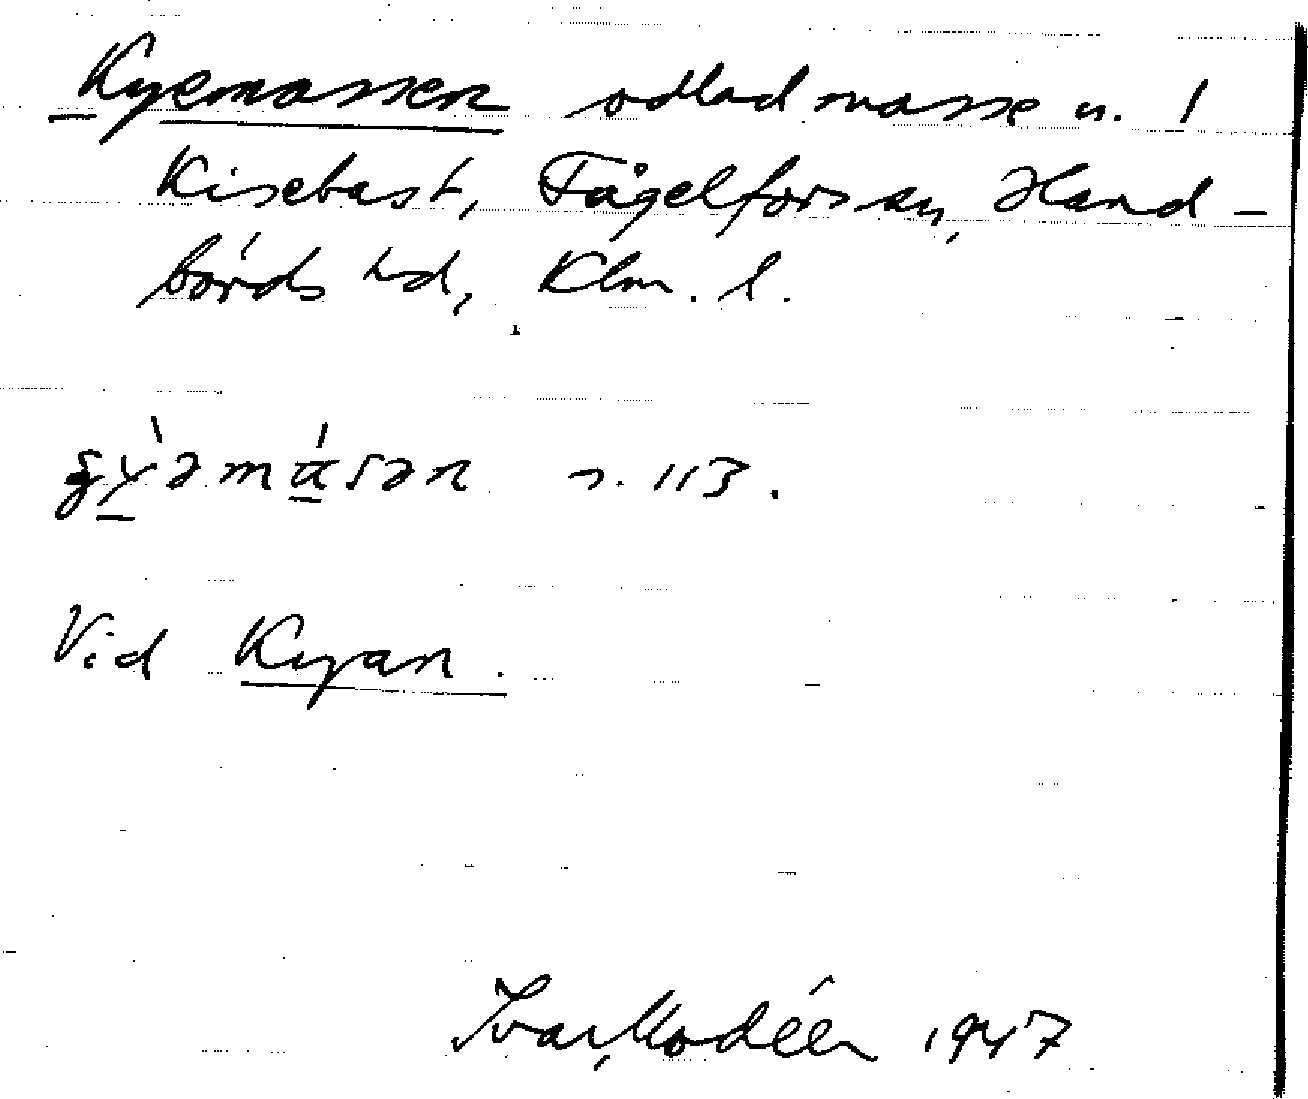 Kyemossen odlad mosse u. /
Kisebast, Fågelfors sn, Hand-
börds hd, Klm. l.
s. 113.
Vid Kyan.
Ivar Modéer 1947